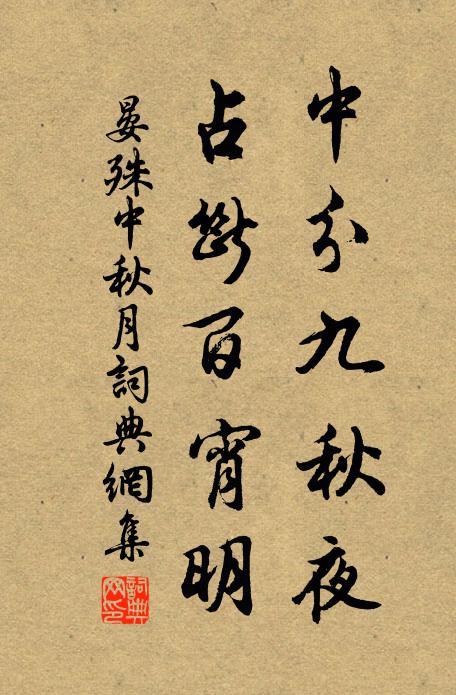 中分九秋夜
占斷百宵明
晏殊中秋月詞典網集
詞典網印